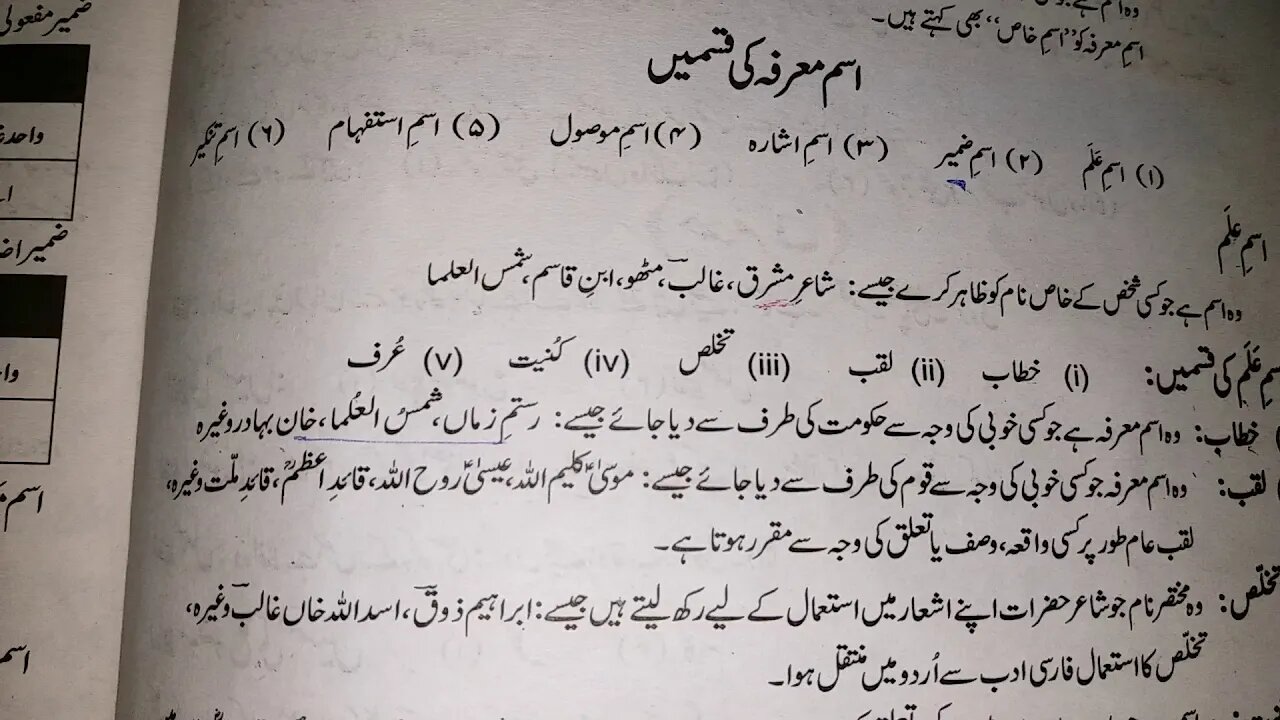 اسمِ معرفہ کو ”اسمِ خاص“ بھی کہتے ہیں۔
اسم معرفہ کی قسمیں
(۱) اسمِ عَلَم (۲) اسمِ ضمیر (۳) اسمِ اشارہ (۴) اسمِ موصول (۵) اسمِ استفہام (۶) اسمِ تنکیر
اسمِ عَلَم
وہ اسم ہے جو کسی شخص کے خاص نام کو ظاہر کرے جیسے: شاعرِ مشرق، غالبؔ، مٹھو، ابنِ قاسم، شمس العلما
اسمِ عَلَم کی قسمیں: (i) خطاب (ii) لقب (iii) تخلص (iv) کُنیت (v) عُرف
خطاب: وہ اسم معرفہ ہے جو کسی خوبی کی وجہ سے حکومت کی طرف سے دیا جائے جیسے: رستمِ زماں، شمسُ العُلما، خان بہادر وغیرہ
لقب: وہ اسم معرفہ جو کسی خوبی کی وجہ سے قوم کی طرف سے دیا جائے جیسے: موسیٰؑ کلیم اللہ، عیسیٰؑ روح اللہ، قائدِ اعظمؒ، قائدِ ملّت وغیرہ،
لقب عام طور پر کسی واقعہ، وصف یا تعلق کی وجہ سے مقرر ہوتا ہے۔
تخلّص: وہ مختصر نام جو شاعر حضرات اپنے اشعار میں استعمال کے لیے رکھ لیتے ہیں جیسے: ابراہیم ذوقؔ، اسد اللہ خاں غالبؔ وغیرہ،
تخلّص کا استعمال فارسی ادب سے اُردو میں منتقل ہوا۔
ضمیر مفعولی
واحد
ضمیر
اسم